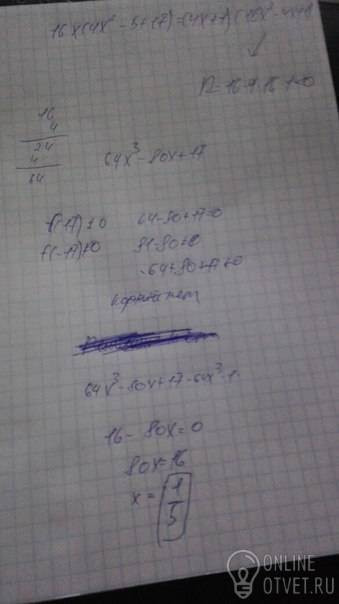 16x(4x² - 5+17)=(4x+1)(16x²-4x+1)
16
4
24
4
64
64x³-80x+17
64-80+17=0
f(-17)≠0
-64+80+17≠0
корней нет
64x³-80x+17-64x³-1
16-80x=0
80x=16
x=1/5
ONLINE
OTVET.RU